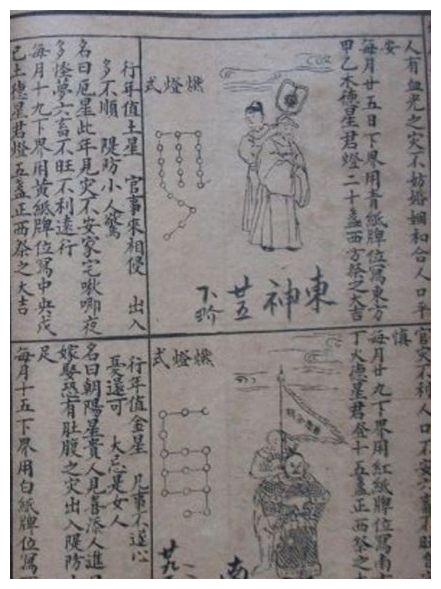 人有血光之灾不妨婚姻和合人口平
安
每月廿五日下界用青紙牌位寫東方
甲乙木德星君燈二十盞西方祭之大吉
東神
廿五
下界
擺燈式
行年值土星 官事來相侵 出入
多不順 隄防小人驚
名曰厄星此年見灾不安家宅啾唧夜
多怪夢六畜不旺不利遠行
每月十九下界用黃紙牌位寫中央戊
己土德星君燈五盞正西祭之大吉
慎
每月廿九下界用紅紙牌位寫南方
丁火德星君燈十五盞正西祭之大
南
廿九
擺燈式
行年值金星 凡事不遂心
憂還可 大忌是女人
名曰朝陽星貴人見喜添人進口
嫁娶恐有肚腹之灾出入隄防小
足
每月十五下界用白紙牌位寫